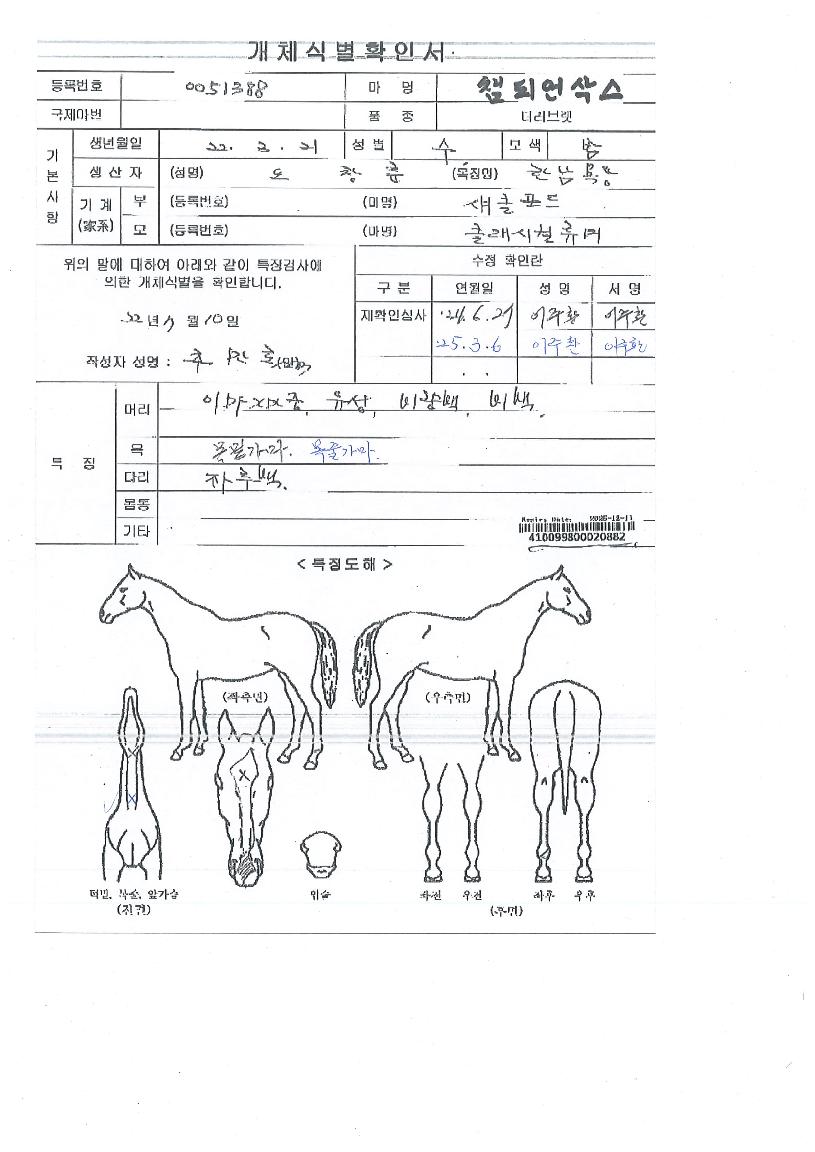 개체식별확인서
등록번호 0051388 마 명 챔피언삭스
국제마번 품 종 더러브렛
기본사항
생년월일 22. 2. 21 성 별 수 모 색 밤
생 산 자 (성명) 도 창 훈 (목장명) 한남목장
기 계 (家系)
부 (등록번호) (마명) 섀클포드
모 (등록번호) (마명) 클래시컬류머
위의 말에 대하여 아래와 같이 특징검사에
의한 개체식별을 확인합니다.
22년 월 10일
작성자 성명 :
수정 확인란
구 분 연월일 성 명 서 명
재확인심사 '24.6.27 이주환 이주환
'25.3.6 이주환 이주환
. .
특 징
머리 유성, 비백.
목 목줄가마.
다리 좌후백.
몸통
기타
Expiry Date: 2025-12-11
410099800020882
<특징도해>
(좌측면) (우측면)
턱밑, 목술, 앞가슴
(전면)
위술
좌전 우전 좌후 우후
(후면)